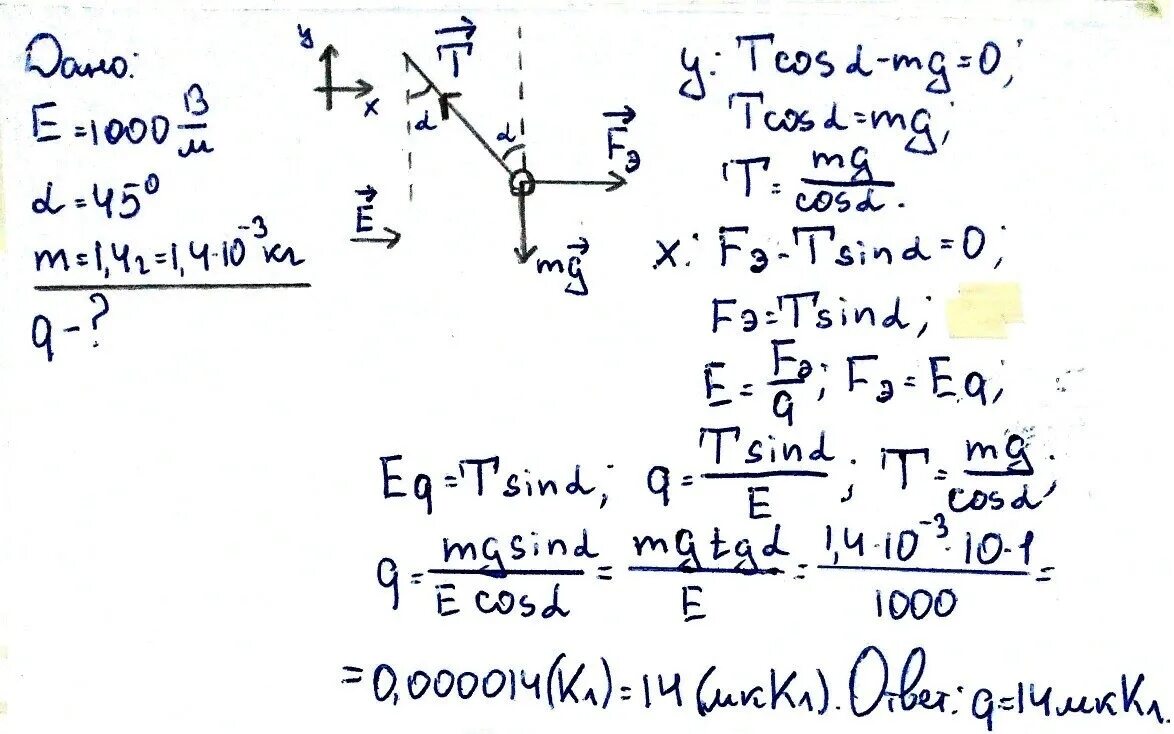 Дано:
E = 1000 В/м
α = 45°
m = 1,4г = 1,4·10⁻³ кг
q - ?
y
x
T⃗
α
α
F⃗э
E⃗
mg⃗
y: Tcosα - mg = 0;
Tcosα = mg;
T = mg/cosα.
x: Fэ - Tsinα = 0;
Fэ = Tsinα;
E = Fэ/q; Fэ = Eq;
Eq = Tsinα; q = Tsinα/E; T = mg/cosα;
q = mgsinα/E cosα = mg tgα/E = 1,4·10⁻³·10·1/1000 =
= 0,000014(Кл) = 14 (мкКл). Ответ: q = 14мкКл.